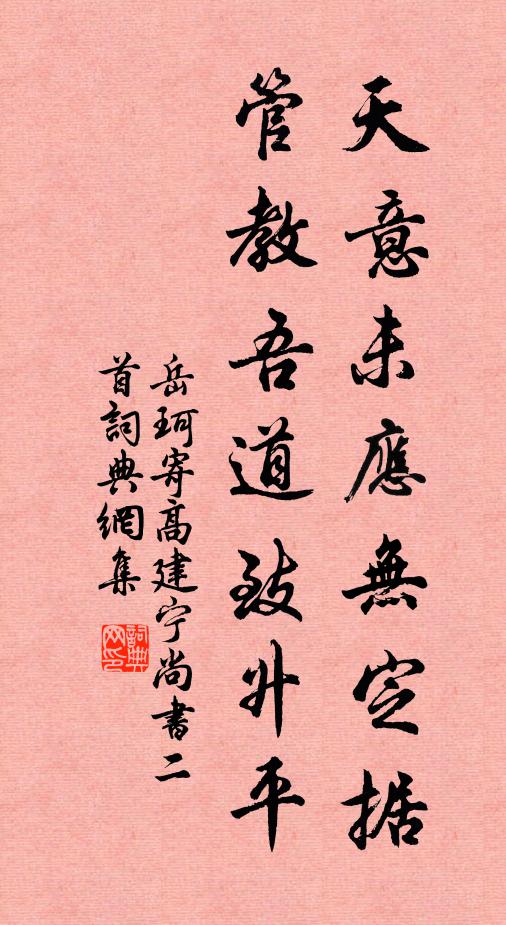 天意未應無定据
管教吾道致升平
岳珂寄高建宁尚書二
首詞典網集
詞典网印